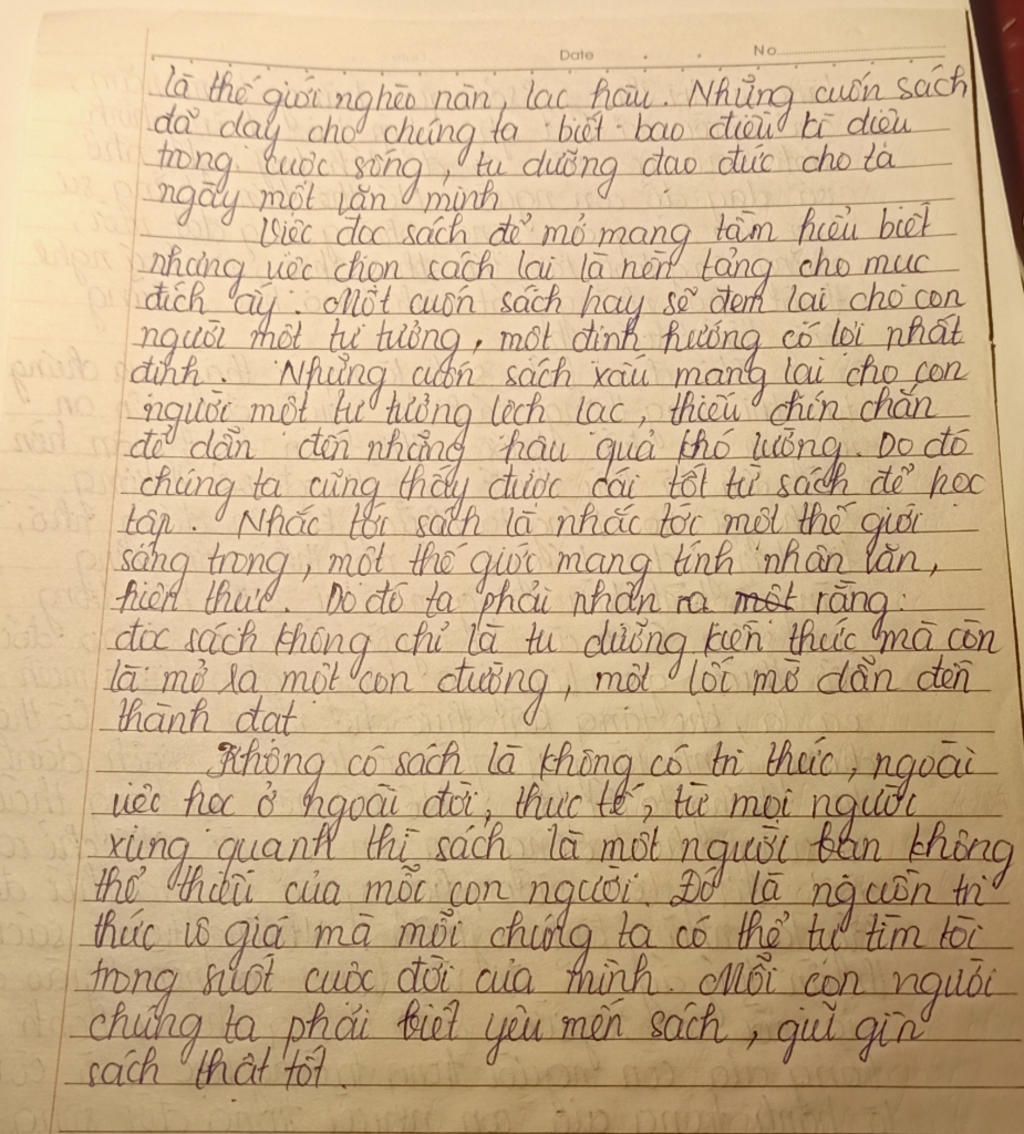 Date No
là thế giới nghèo nàn, lạc hậu. Những cuốn sách
đã dạy cho chúng ta biết bao điều kì diệu
trong cuộc sống, tu dưỡng đạo đức cho ta
ngày một văn minh
Việc đọc sách để mở mang tầm hiểu biết
nhưng việc chọn sách lại là nền tảng cho mục
đích ấy. Một cuốn sách hay sẽ đem lại cho con
người một tư tưởng, một định hướng có lợi nhất
định. Những cuốn sách xấu mang lại cho con
người một tư tưởng lệch lạc, thiếu chín chắn
để dẫn đến những hậu quả khó lường. Do đó
chúng ta cũng thấy được cái tốt từ sách để học
tập. Nhắc tới sách là nhắc tới một thế giới
sáng trong, một thế giới mang tính nhân văn,
hiện thực. Do đó ta phải nhận ra một rằng:
đọc sách không chỉ là tu dưỡng kiến thức mà còn
là mở ra một con đường, một lối mở dẫn đến
thành đạt
Không có sách là không có tri thức, ngoài
việc học ở ngoài đời, thực tế, từ mọi người
xung quanh thì sách là một người bạn không
thể thiếu của mỗi con người. Đó là nguồn tri
thức vô giá mà mỗi chúng ta có thể tự tìm tòi
trong suốt cuộc đời của mình. Mỗi con người
chúng ta phải biết yêu mến sách, giữ gìn
sách thật tốt.